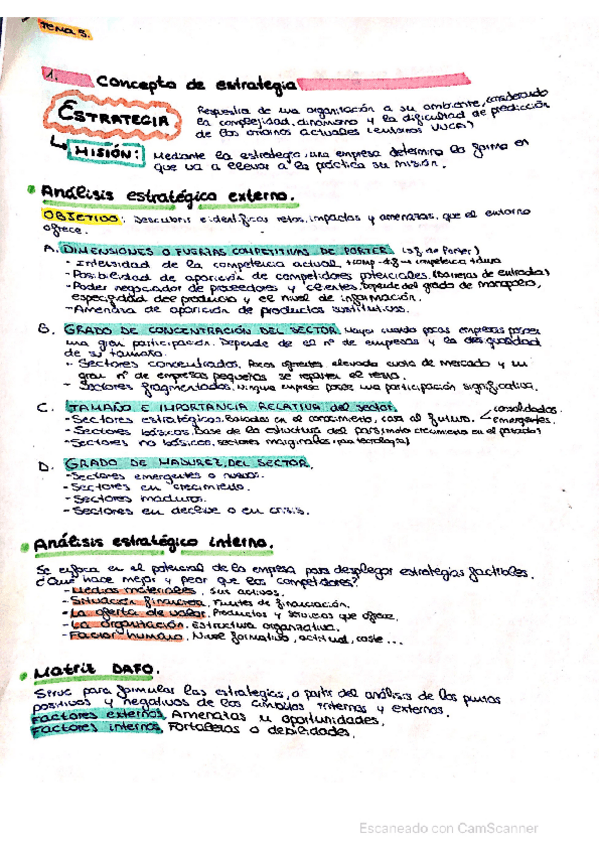 TEMA 5.
1. Concepto de estrategia
ESTRATEGIA Respuesta de una organización a su ambiente, considerando
la complejidad, dinamismo y la dificultad de predicción
de los entornos actuales (entornos VUCA)
MISIÓN: Mediante la estrategia, una empresa determina la forma en
que va a llevar a la práctica su misión.
Análisis estratégico externo.
OBJETIVO: Descubrir e identificar retos, impactos y amenazas, que el entorno
ofrece.
A. DIMENSIONES O FUERZAS COMPETITIVAS DE PORTER
- Intensidad de la competencia actual
- Posibilidad de aparición de competidores potenciales. (Barreras de entrada)
- Poder negociador de proveedores y clientes. Depende del grado de monopolio,
especificidad del producto y el nivel de información.
- Amenaza de aparición de productos sustitutivos.
B. GRADO DE CONCENTRACIÓN DEL SECTOR. Mayor cuando pocas empresas poseen
una gran participación. Depende de el nº de empresas y la desigualdad
de su tamaño.
- Sectores concentrados. Pocos oferentes elevada cuota de mercado y un
gran nº de empresas pequeñas se reparten el resto.
- Sectores fragmentados. Ninguna empresa posee una participación significativa.
C. TAMAÑO E IMPORTANCIA RELATIVA del sector
- Sectores estratégicos. Basados en el conocimiento, cara al futuro. consolidados.
emergentes.
- Sectores básicos. Base de la estructura del país (motor crecimiento en el pasado)
- Sectores no básicos, sectores marginales (por tecnología)
D. GRADO DE MADUREZ DEL SECTOR.
- Sectores emergentes o nuevos.
- Sectores en crecimiento.
- Sectores maduros.
- Sectores en declive o en crisis.
Análisis estratégico interno.
Se enfoca en el potencial de la empresa para desplegar estrategias factibles.
¿Qué hace mejor y peor que los competidores?
- Medios materiales. Sus activos.
- Situación financiera. Fuentes de financiación.
- La oferta de valor. Productos y servicios que ofrece.
- La organización. Estructura organizativa.
- Factor humano. Nivel formativo, actitud, coste...
Matriz DAFO.
Sirve para formular las estrategias, a partir del análisis de los puntos
positivos y negativos de los ámbitos internos y externos.
Factores externos. Amenazas u oportunidades.
Factores internos. Fortalezas o debilidades.
Escaneado con CamScanner